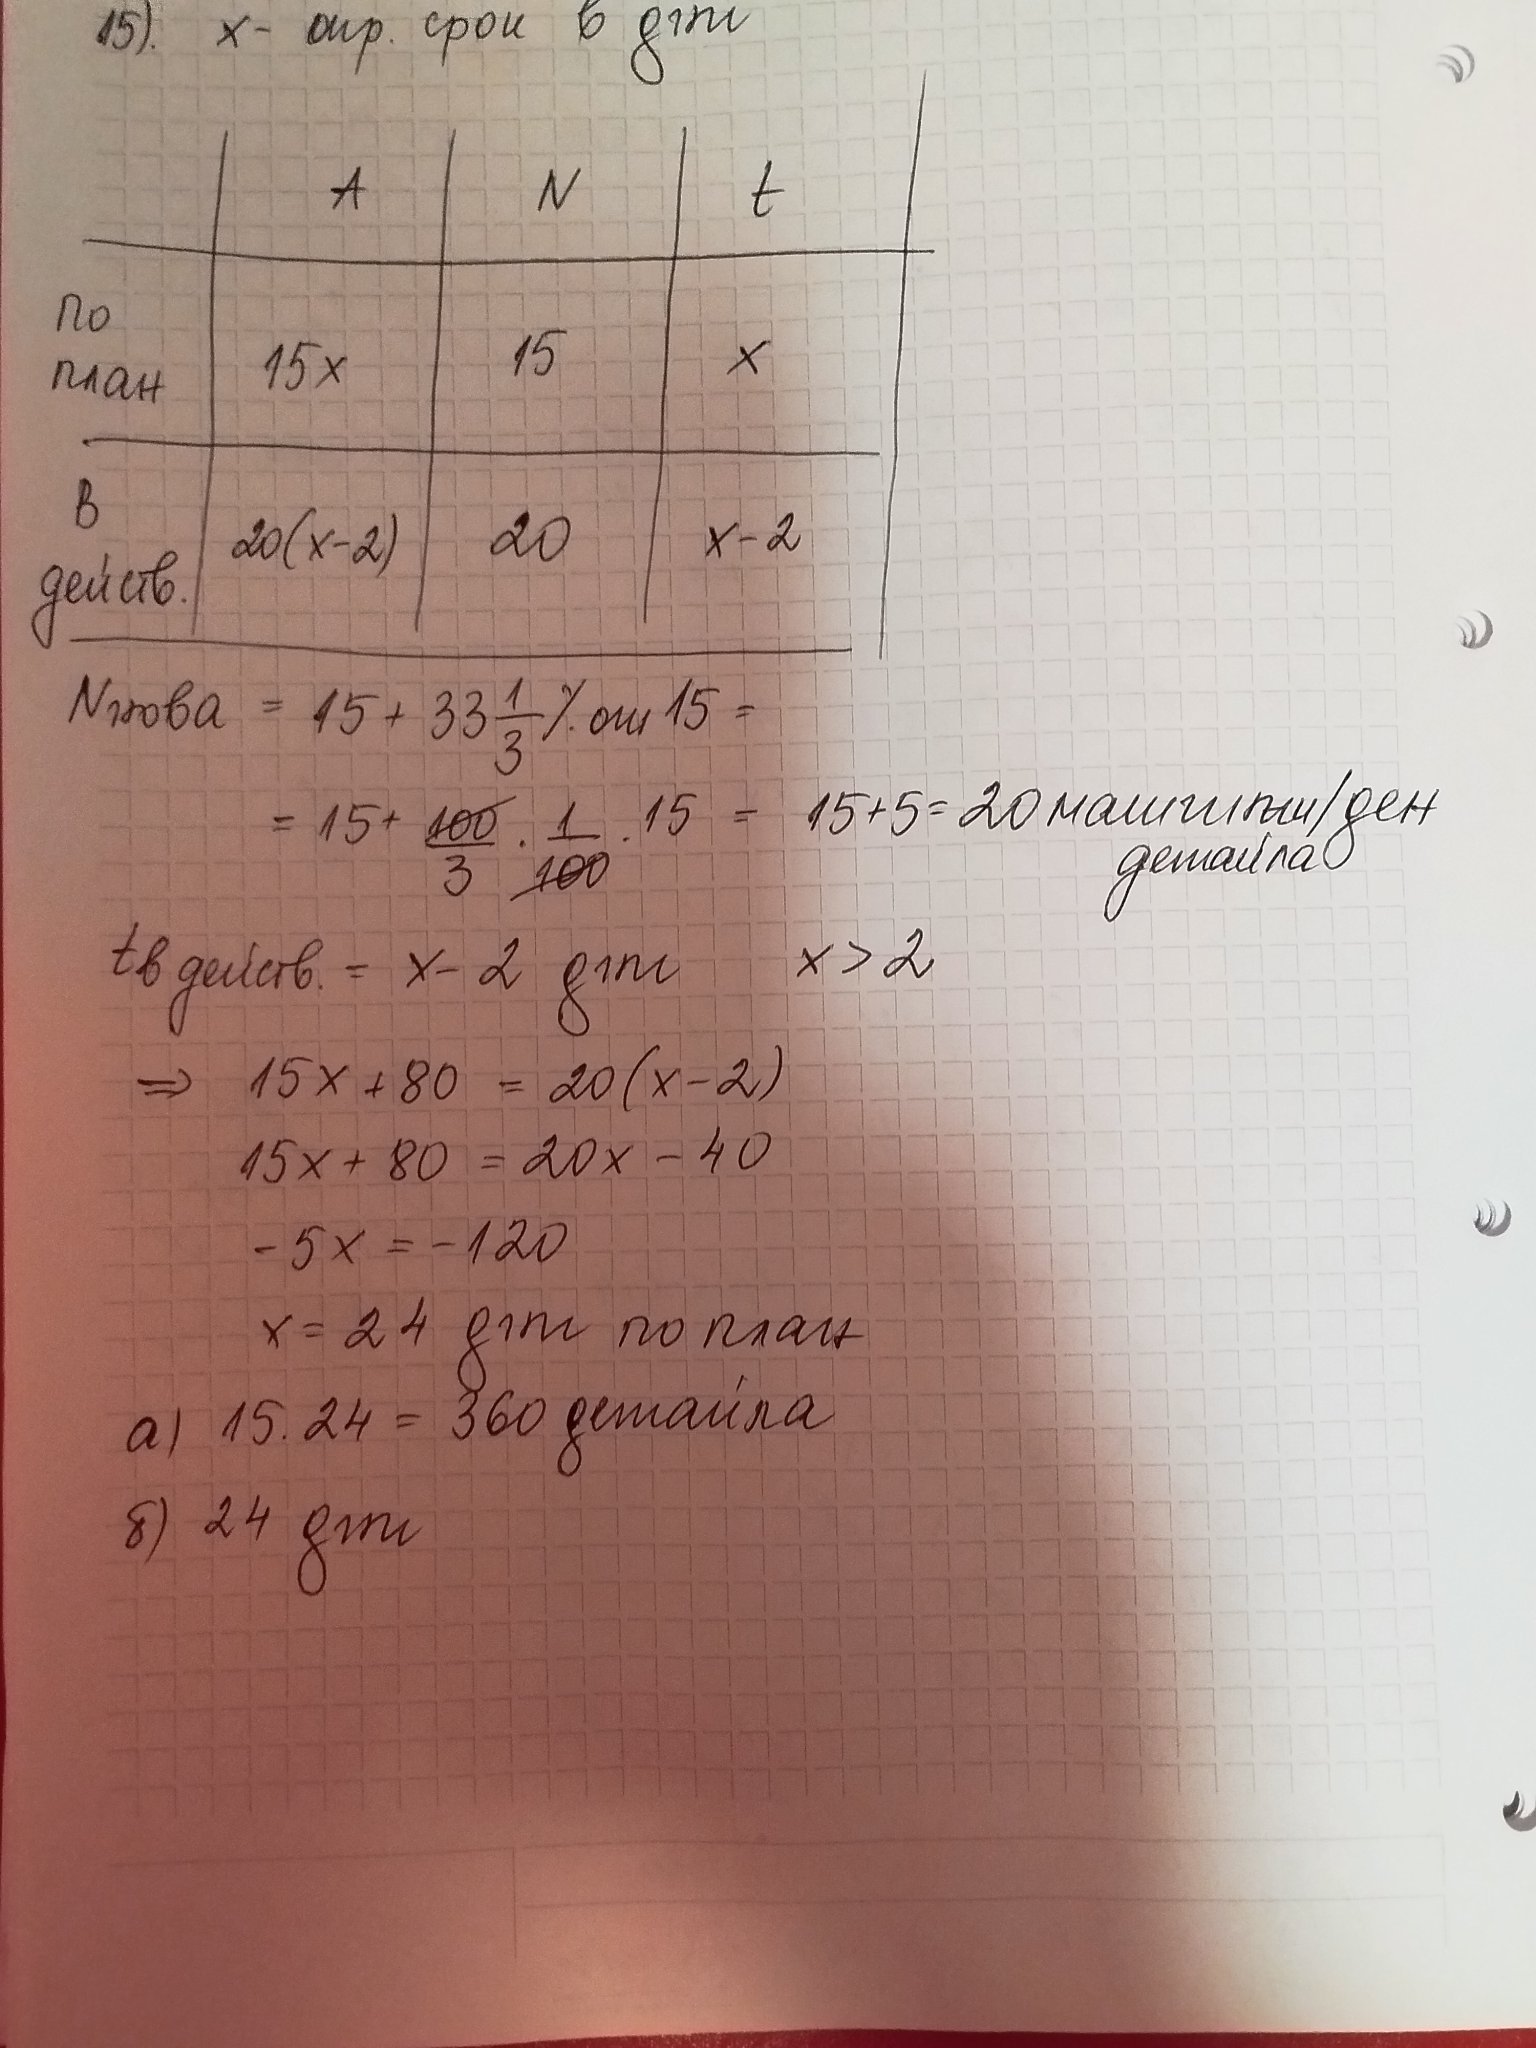 15). x - опр. срок в дни
A N t
По план 15x 15 x
В действ. 20(x-2) 20 x-2
Nнова = 15 + 33 1/3 % от 15 =
= 15 + 100/3 . 1/100 . 15 = 15+5 = 20 машини/ден
детайла
t в действ. = x - 2 дни x > 2
⇒ 15x + 80 = 20(x-2)
15x + 80 = 20x - 40
-5x = -120
x = 24 дни по план
а) 15.24 = 360 детайла
б) 24 дни